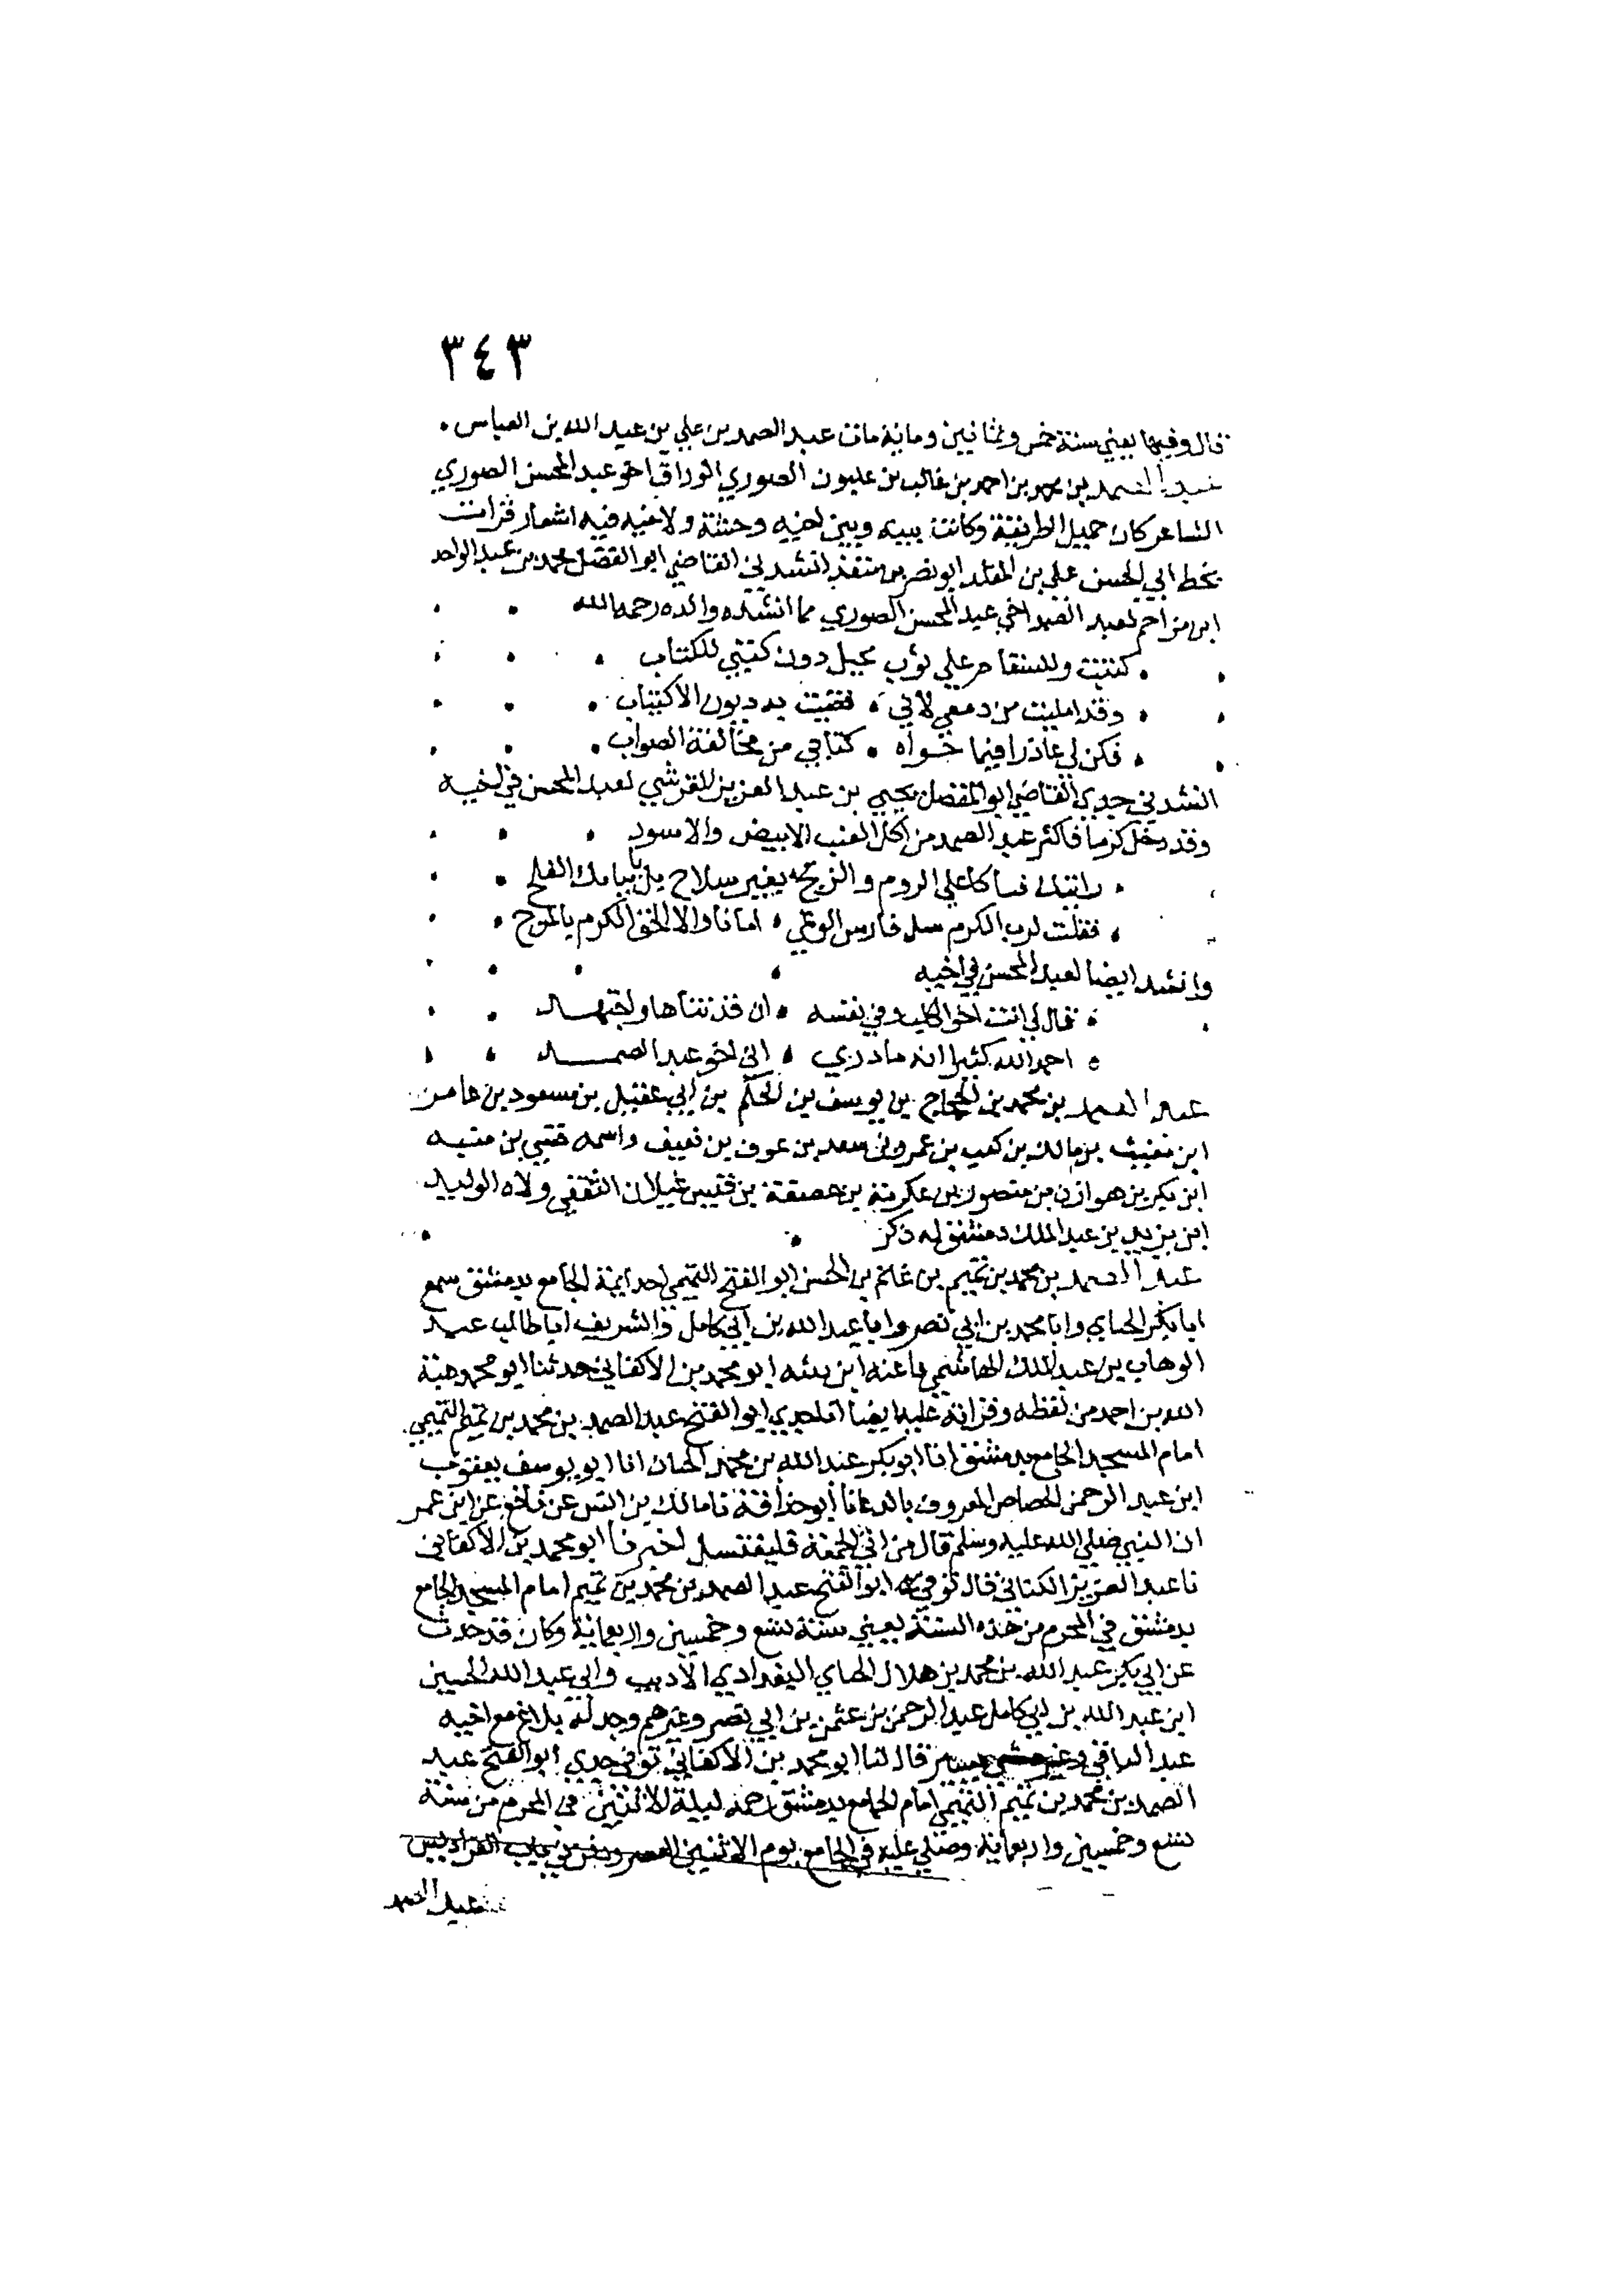 ٣٤٣
قال وفيها يعني سنة خمس وثمانين ومائة مات عبد الصمد بن علي بن عبد الله بن العباس .
عبد الصمد بن محمد بن احمد بن غالب بن غلبون الصوري الوراق اخو عبد المحسن الصوري
الشاعر كان جميل الطريقة وكانت بينه وبين اخيه وحشة ولاخيه فيه اشعار قرات
بخط ابي الحسن علي بن المقلد ابو نصر بن منقذ انشدني القاضي ابو الفضل محمد بن عبد الواحد
ابن مزاحم لعبد الصمد اخي عبد المحسن الصوري مما انشده والده رحمه الله
كتبت وللسقام علي ثوب يحيل دون كتبي للكتاب
وقد امليت من دمعي لاني
فكن لي عاذرا فيما حواه . كتابي من مخالفة الصواب
انشدني جدي القاضي ابو المفضل يحيى بن عبد العزيز القرشي لعبد المحسن في اخيه
وقد دخل كرما فاكثر عبد الصمد من اكل العنب الابيض والاسود
على الروم والزنج بغير سلاح
فقلت لرب الكرم سل فارس الوغى . امانا والا الكرم
وانشد ايضا لعبد المحسن في اخيه
فقال لي انت اخو الكلب وفي نفسه . ان قد تناها واجتهد
احمد الله كثيرا انه ما درى . اني اخو عبد الصمد
عبد الصمد بن محمد بن الحجاج بن يوسف بن الحكم بن ابي عقيل بن مسعود بن عامر
ابن معتب بن مالك بن كعب بن عمرو بن سعد بن عوف بن ثقيف واسمه قسي بن منبه
ابن بكر بن هوازن بن منصور بن عكرمة بن خصفة بن قيس غيلان الثقفي ولاه الوليد
ابن يزيد بن عبد الملك دمشق له ذكر
عبد الصمد بن محمد بن تميم بن غانم بن الحسن ابو الفتح التميمي احد ايمة الجامع بدمشق سمع
ابا بكر الحناي وابا محمد بن ابي نصر وابا عبد الله بن ابي كامل والشريف ابا طالب عبد
الوهاب بن عبد الملك الهاشمي نا عنه ابن بنته ابو محمد بن الاكفاني حدثنا ابو محمد هبة
الله بن احمد من لفظه وقراته عليه ايضا انا جدي ابو الفتح عبد الصمد بن محمد بن تميم التميمي
امام المسجد الجامع بدمشق انا ابو بكر عبد الله بن محمد انا ابو يوسف يعقوب
ابن عبد الرحمن الجصاص المعروف بالدعا نا ابو حذافة نا مالك بن انس عن نافع عن ابن عمر
ان النبي صلي الله عليه وسلم قال من اتى الجمعة فليغتسل اخبرنا ابو محمد بن الاكفاني
نا عبد العزيز الكتاني قال توفي ابو الفتح عبد الصمد بن محمد بن تميم امام المسجد الجامع
بدمشق في المحرم من هذه السنة يعني سنة تسع وخمسين واربعماية وكان قد حدث
عن ابي بكر عبد الله بن محمد بن هلال الحناي البغدادي الاديب وابي عبد الله الحسين
ابن عبد الله بن ابي كامل عبد الرحمن بن عثمن بن ابي نصر وغيرهم وجد له بلاغ مع اخيه
عبد الباقي قال لنا ابو محمد بن الاكفاني توفي جدي ابو الفتح عبد
الصمد بن محمد بن تميم التميمي امام الجامع بدمشق رحمه ليلة الاثنين في المحرم من سنة
تسع وخمسين واربعماية وصلي عليه في الجامع يوم الاثنين العصر ودفن في باب الفراديس
عبد الصمد